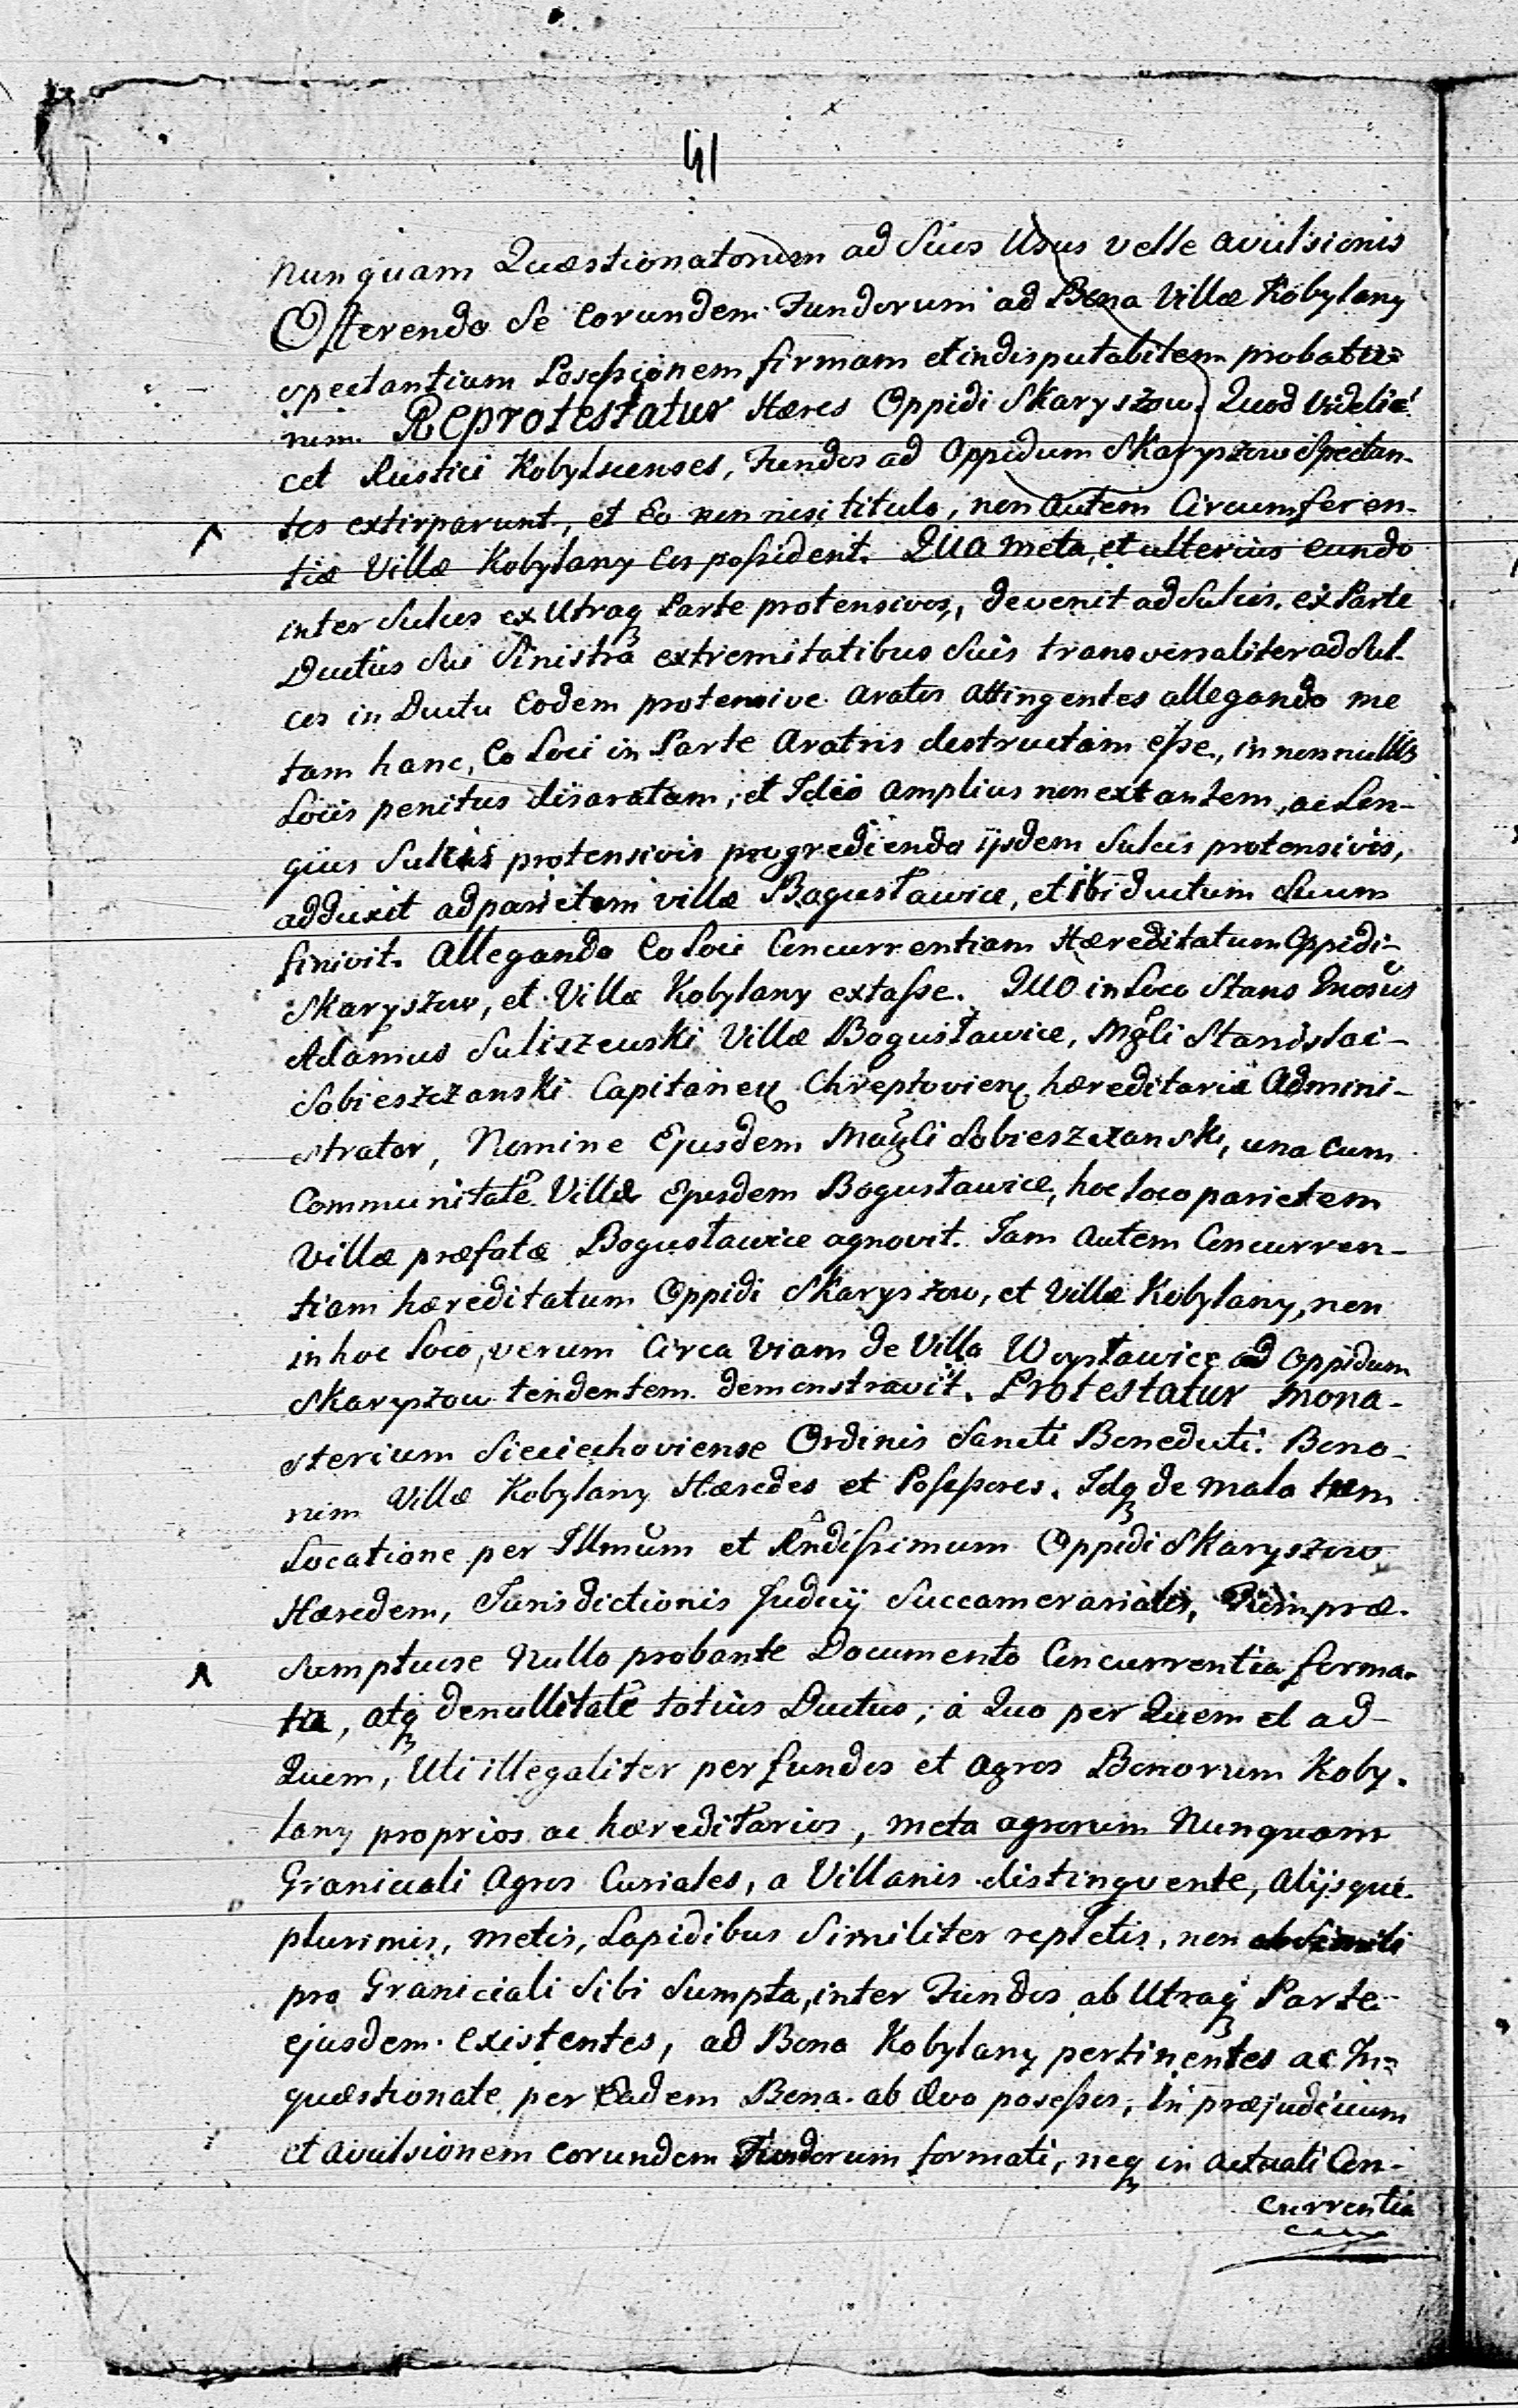 41
nunquam Quæstionatorum ad Suos Usus velle avulsionis
Offerendo Se Eorundem Fundorum ad Bona Villæ Kobylany
spectantium Possessionem firmam et indisputabilem probatu-
rum. Reprotestatur Hæres Oppidi Skaryszow. Quod Videli-
cet Rustici Kobylnenses, Fundos ad Oppidum Skaryszow Spectan-
tes extirparunt, et Eo non nisi titulo, non autem Circumferen-
tiæ Villæ Kobylany eos possident. QUA meta, et ulterius eundo
inter Sulcos ex Utraq Parte protensivos, devenit ad Sulcos ex Parte
Ductus Sui Sinistra extremitatibus Suis transversaliter ad Sul-
cos in Ductu Eodem protensive aratos attingentes allegando me
tam hanc, Eo Loci in Parte Aratris destructam esse, in nonnullis
Locis penitus disaratam, et Ideo amplius non extantem, ac Lon-
gius Sulcis protensivis progrediendo ijsdem Sulcis protensivis,
adduxit ad parietem villæ Bogusławice, et ibi ductum Suum
finivit. Allegando Eo Loci Concurrentiam Hæreditatum Oppidi-
Skaryszow, et Villæ Kobylany extasse. QUO in Loco Stans Gnosus
Adamus Suliszewski Villæ Bogusławice, Mgfli Stanislai-
Sobieszczanski Capitanei Chreptovien hæreditariæ Admini-
strator, Nomine Ejusdem Magfli Sobieszczanski, una cum
Communitate Villæ Ejusdem Bogusławice, hoc loco parietem
Villæ præfatæ Bogusławice agnovit. Iam autem Concurren-
tiam hæreditatum Oppidi Skaryszow, et Villæ Kobylany, non
in hoc Loco, verum Circa Viam de Villa Woysławice ad Oppidum
Skaryszow tendentem demonstravit. Protestatur Mona-
sterium Sieciechoviense Ordinis Sancti Benedicti. Bono-
rum Villæ Kobylany Hæredes et Possessores. Idq de mala tum
Locatione per Illmum et Rndissimum Oppidi Skaryszow
Hæredem, Jurisdictionis Judicij Succamerarialis, præ-
sumptuose Nullo probante Documento Concurrentia forma-
ta, atq de nullitate totius Ductus, à Quo per Quem et ad-
Quem, Uti illegaliter per fundos et agros Bonorum Koby-
lany proprios ac hæreditarios, meta agrorum Nunquam
Graniciali Agros Curiales, a Villanis distinguente, alijsque
plurimis, metis, Lapidibus Similiter repletis, non
pro Graniciali Sibi Sumpta, inter Fundos ab Utraq Parte
ejusdem existentes, ad Bona Kobylany pertinentes ac In-
quæstionate per Eadem Bona ab Ævo possessos, in præjudicium
et avulsionem eorundem Fundorum formati, neq in actuali Con-
currentia